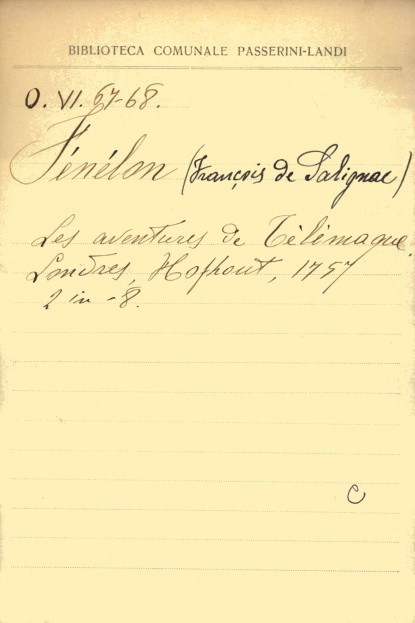 BIBLIOTECA COMUNALE PASSERINI-LANDI
O. VI. 67-68.
Fénélon (François de Salignac)
Les aventures de Télémaque.
Londres, Hophout, 1757
2 in -8.
C